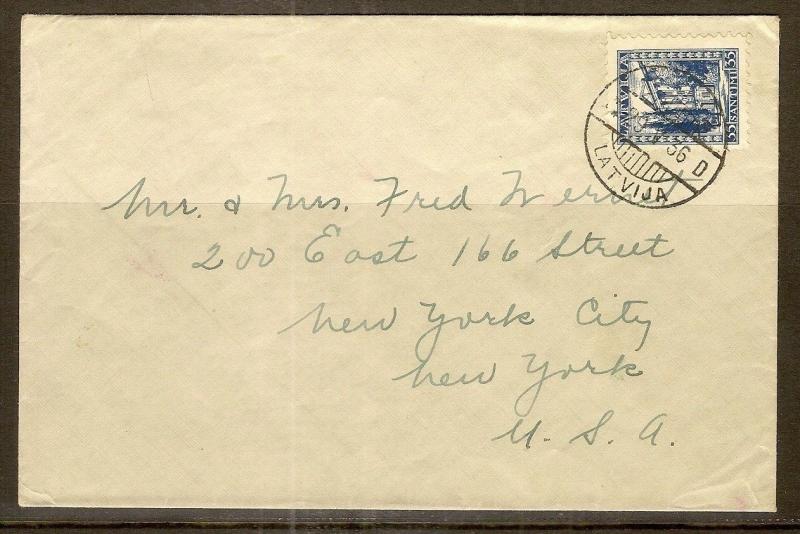 LATVIJA
35 SANTIMI 35
36 D
LATVIJA
Mr. & Mrs. Fred
200 East 166 Street
New York City
New York
U. S. A.